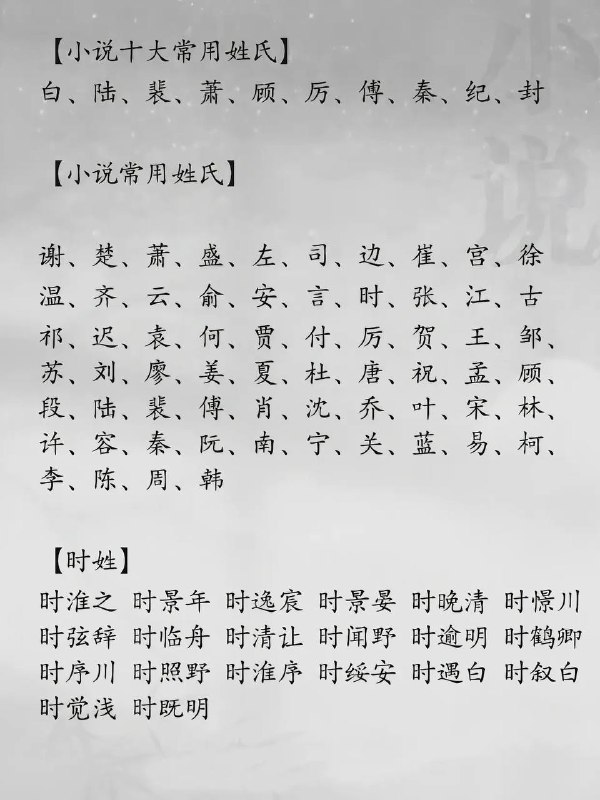 【小说十大常用姓氏】
白、陆、裴、萧、顾、厉、傅、秦、纪、封
【小说常用姓氏】
谢、楚、萧、盛、左、司、边、崔、宫、徐
温、齐、云、俞、安、言、时、张、江、古
祁、迟、袁、何、贾、付、厉、贺、王、邹、
苏、刘、廖、姜、夏、杜、唐、祝、孟、顾、
段、陆、裴、傅、肖、沈、乔、叶、宋、林、
许、容、秦、阮、南、宁、关、蓝、易、柯、
李、陈、周、韩
【时姓】
时淮之 时景年 时逸宸 时景晏 时晚清 时憬川
时弦辞 时临舟 时清让 时闻野 时逾明 时鹤卿
时序川 时照野 时淮序 时绥安 时遇白 时叙白
时觉浅 时既明
小说